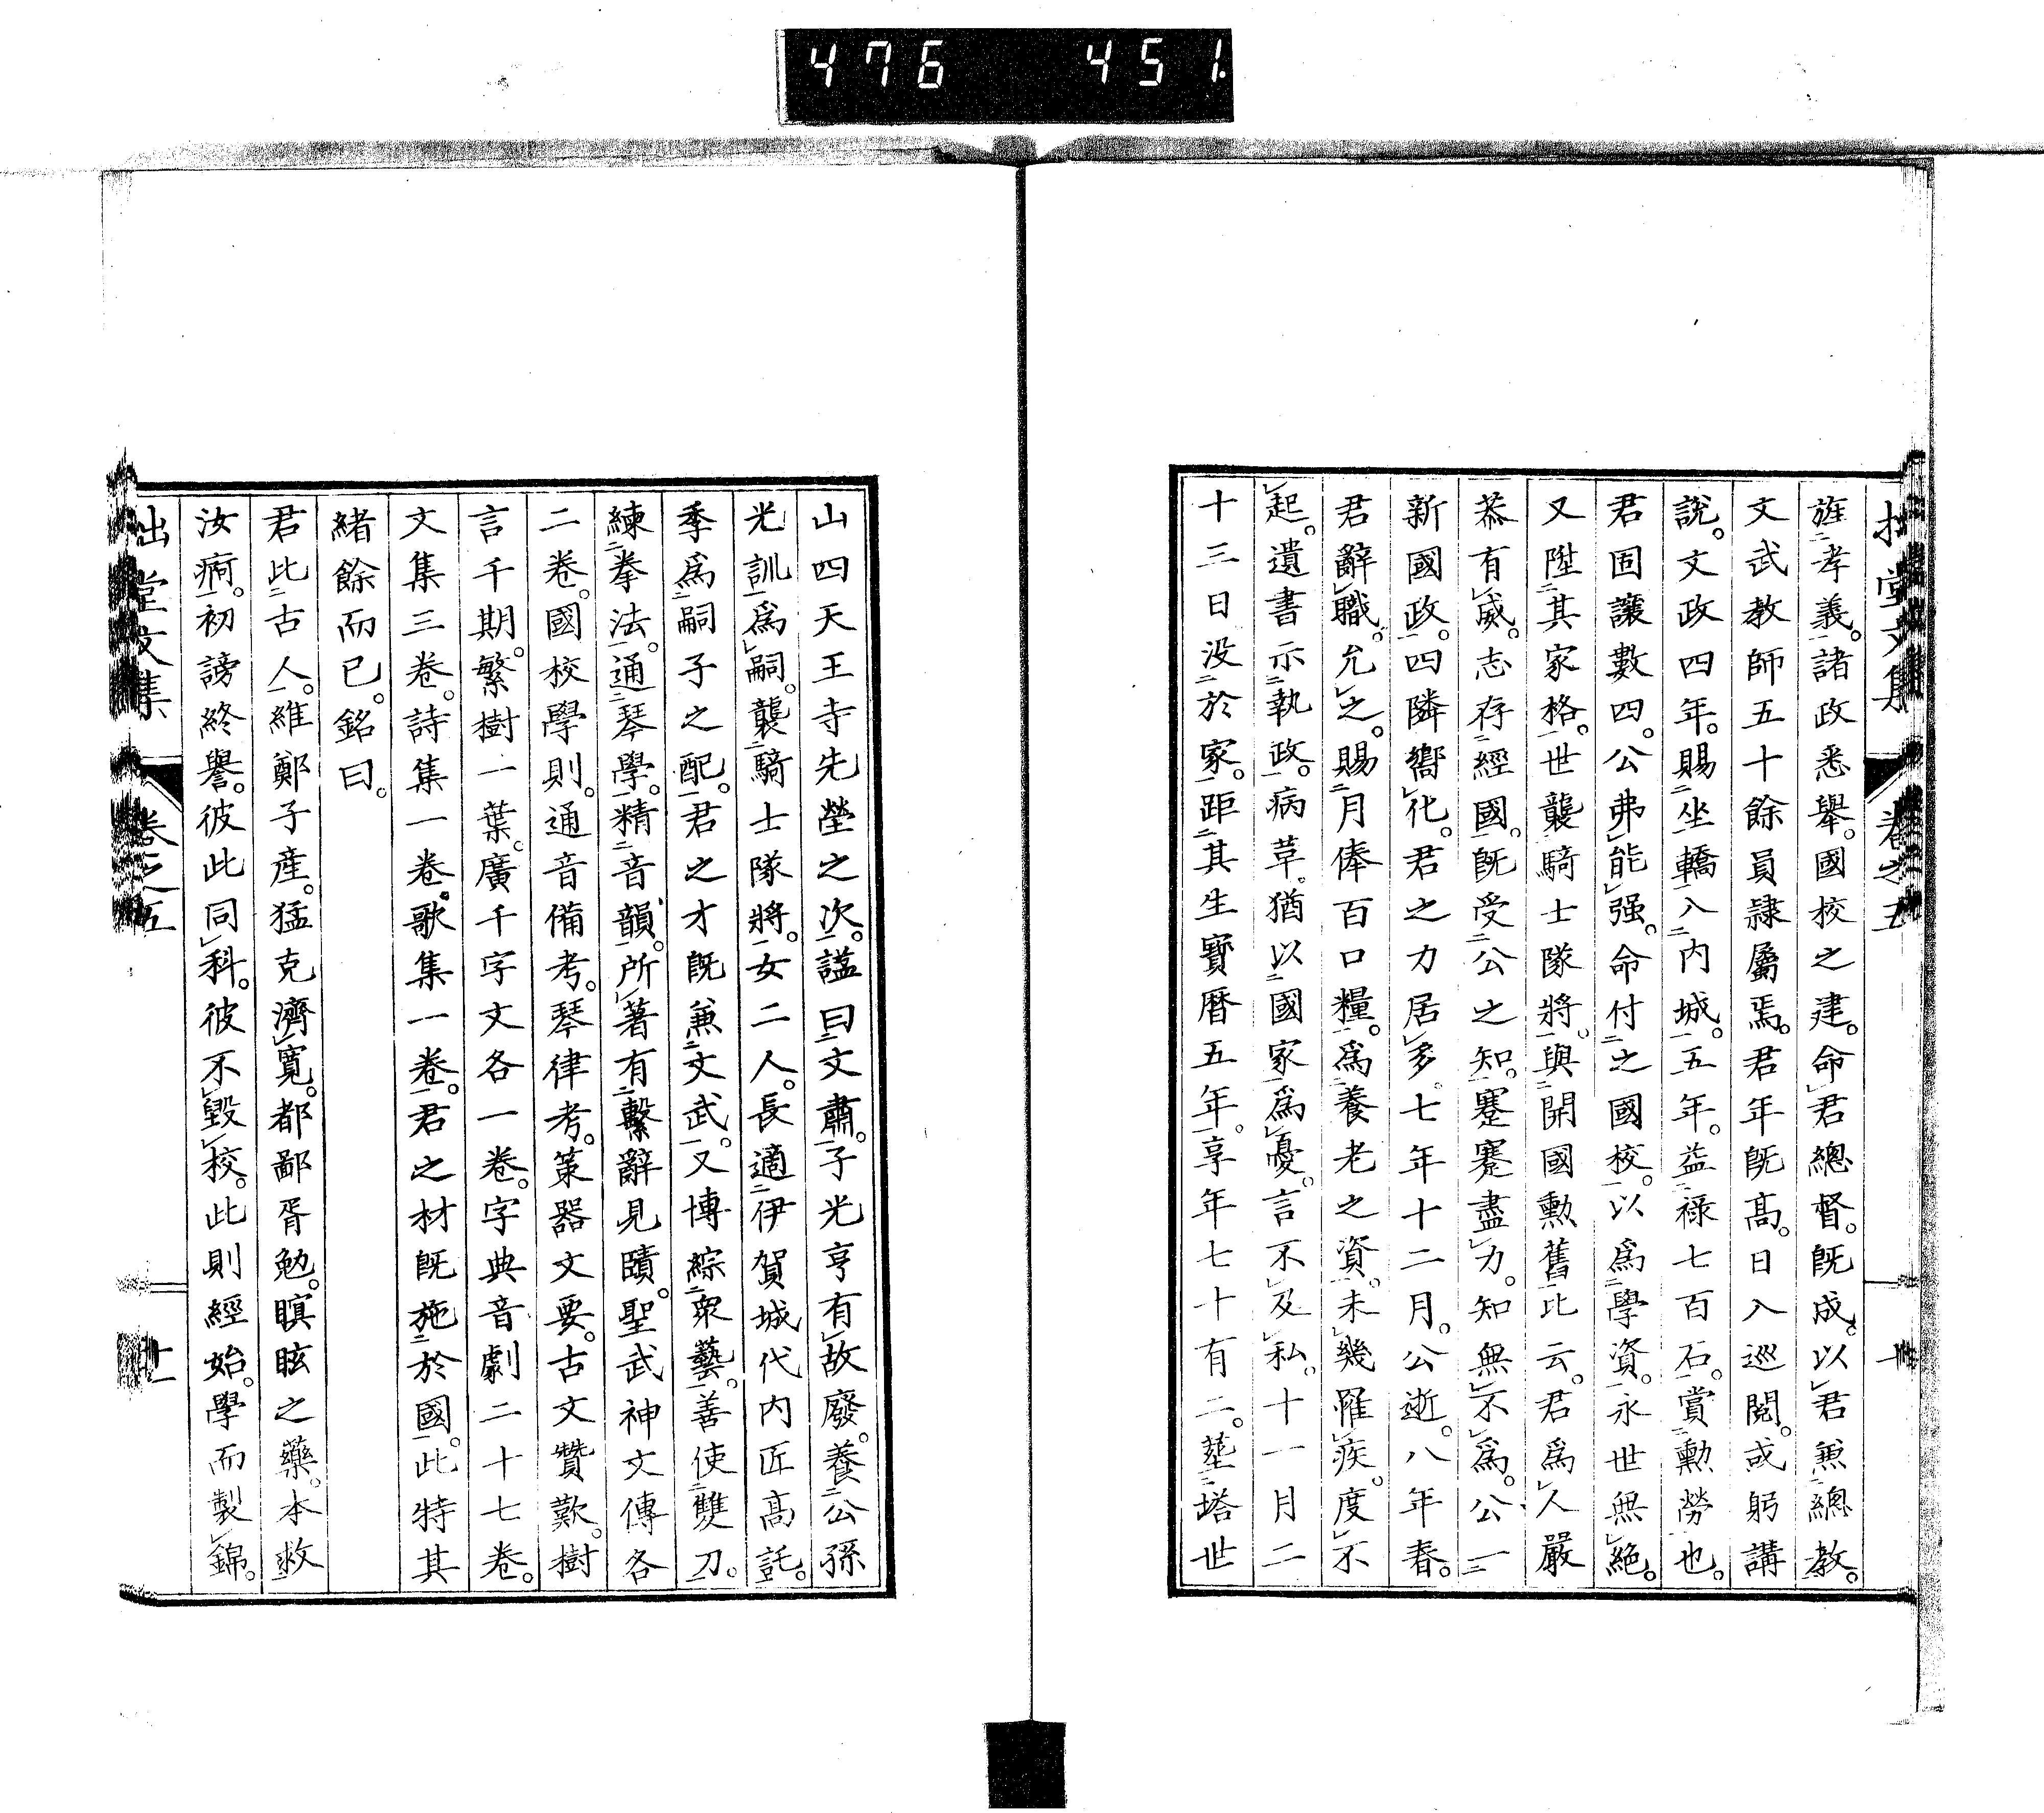 476 451
旌孝義。諸政悉擧。國校之建。命君總督。既成。以君兼總教。
文武教師五十餘員隷屬焉。君年既高。日入巡閲。或躬講
說。文政四年。賜坐轎入内城。五年。益祿七百石。賞勲勞也。
君固讓數四。公弗能强。命付之國校。以爲學資。永世無絶。
又陞其家格。世襲騎士隊將。與開國勲舊比云。君爲人嚴
恭有威。志存經國。既受公之知。蹇蹇盡力。知無不爲。公一
新國政。四隣嚮化。君之力居多。七年十二月。公逝。八年春。
君辭職。允之。賜月俸百口糧。爲養老之資。未幾罹疾。度不
起。遺書示執政。病草。猶以國家爲憂。言不及私。十一月二
十三日没於家。距其生寶暦五年。享年七十有二。塟塔世
山四天王寺先塋之次。諡曰文肅。子光亨有故廢。養公孫
光訓爲嗣。襲騎士隊將。女二人。長適伊賀城代内匠高託。
季爲嗣子之配。君之才既兼文武。又博綜衆藝。善使雙刀。
練拳法。通琴學。精音韻。所著有繫辭見賾。聖武神文傳各
二卷。國校學則。通音備考。琴律考。策器文要。古文贊歎。樹
言千期。繁樹一葉。廣千字文各一卷。字典音劇二十七卷。
文集三卷。詩集一卷。歌集一卷。君之材既施於國。此特其
緒餘而已。銘曰。
君比古人。維鄭子産。猛克濟寬。都鄙胥勉。瞑眩之藥。本救
汝痾。初謗終譽。彼此同科。彼不毀校。此則經始。學而製錦。
堂文集 卷之五